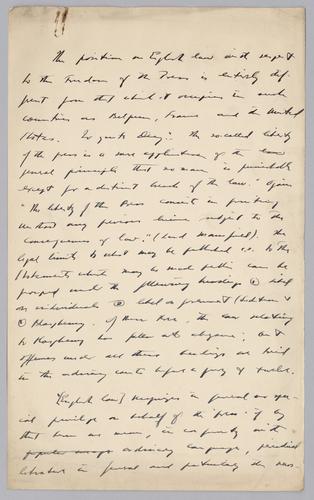 The position in English law with respect
to the Freedom of the Press is entirely dif-
ferent from that which it occupies in such
countries as Belgium, France and the United
States. To quote Dicey: "The so called liberty
of the press is a mere application of the
general principle that no man is punishable
except for a distinct breach of the law." Again
"The liberty of the Press consists in printing
without any previous license subject to the
consequences of law." (Lord Mansfield). The
legal limits to what may be published i.e. to the
statements which may be made public can be
grouped under the following headings ① libel
on individuals ② libel on government (sedition &
③ Blasphemy. Of these the law relating
to Blasphemy has fallen into abeyance; but
offences under all these headings are tried
in the ordinary courts before a jury of
English Law recognizes in general no spe-
cial privilege on behalf of the press. If by
that term we mean, in conformity with
ordinary language, periodical
literature in general and particularly the news-